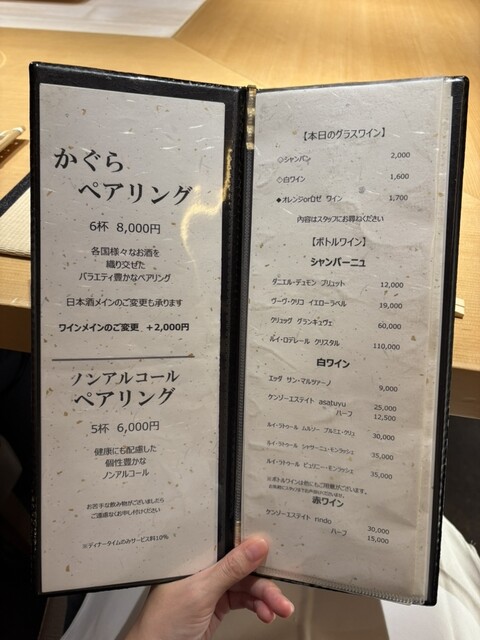 かぐら
ペアリング
6杯 8,000円
各国様々なお酒を
織り交ぜた
バラエティ豊かなペアリング
日本酒メインのご変更も承ります
ワインメインのご変更 +2,000円
ノンアルコール
ペアリング
5杯 6,000円
健康にも配慮した
個性豊かな
ノンアルコール
お苦手な飲み物がございましたら
ご遠慮なくお申し付けください
※ディナータイムのみサービス料10%
【本日のグラスワイン】
◇シャンパン 2,000
◇白ワイン 1,600
◆オレンジorロゼ ワイン 1,700
内容はスタッフにお尋ねください
【ボトルワイン】
シャンパーニュ
ダニエル・デュモン ブリュット 12,000
ヴーヴ・クリコ イエローラベル 19,000
クリュッグ グランキュヴェ 60,000
ルイ・ロデレール クリスタル 110,000
白ワイン
エッダ サン・マルツァーノ 9,000
ケンゾーエステイト asatuyu 25,000
ハーフ 12,500
ルイ・ラトゥール ムルソー プルミエ・クリュ 30,000
ルイ・ラトゥール シャサーニュ・モンラッシェ 35,000
ルイ・ラトゥール ピュリニー・モンラッシェ 35,000
※ボトルワインは他にもご用意がございます。
赤ワイン
ケンゾーエステイト rindo 30,000
ハーフ 15,000